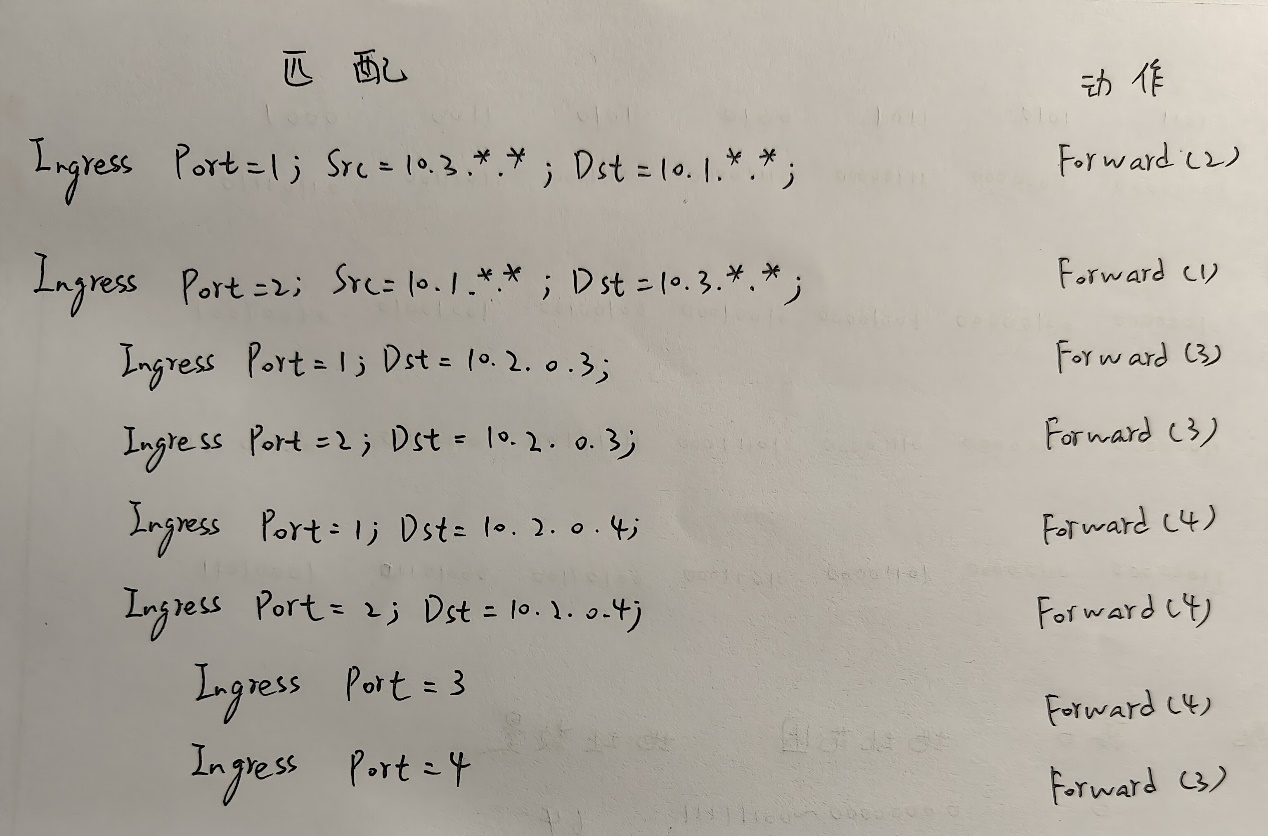 匹配 动作
Ingress Port=1; Src=10.3.*.*; Dst=10.1.*.*; Forward(2)
Ingress Port=2; Src=10.1.*.*; Dst=10.3.*.*; Forward(1)
Ingress Port=1; Dst=10.2.0.3; Forward(3)
Ingress Port=2; Dst=10.2.0.3; Forward(3)
Ingress Port=1; Dst=10.2.0.4; Forward(4)
Ingress Port=2; Dst=10.2.0.4; Forward(4)
Ingress Port=3 Forward(4)
Ingress Port=4 Forward(3)